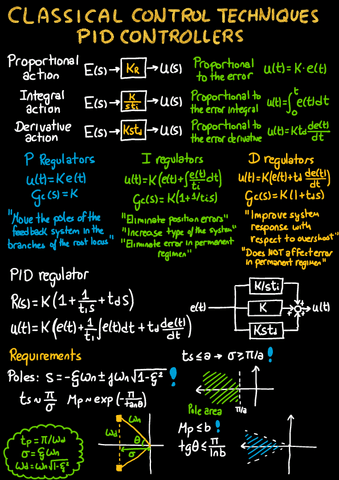 CLASSICAL CONTROL TECHNIQUES
PID CONTROLLERS
Proportional action E(s) → KR → U(s) Proportional to the error u(t)=K·e(t)
Integral action E(s) → K/sti → U(s) Proportional to the error integral u(t)=∫₀ᵗ e(t)dt
Derivative action E(s) → Kstd → U(s) Proportional to the error derivative u(t)=Ktd de(t)/dt
P Regulators
u(t)=Ke(t)
Gc(s)=K
"Move the poles of the
feedback system in the
branches of the root locus"
I regulators
u(t)=K(e(t)+∫e(t)/ti dt)
Gc(s)=K(1+1/tis)
"Eliminate position errors"
"Increase type of the system"
"Eliminate error in permanent
regimen"
D regulators
u(t)=K(e(t)+td de(t)/dt)
Gc(s)=K(1+tds)
"Improve system
response with
respect to overshoot"
"Does NOT affect error
in permanent regimen"
PID regulator
R(s)=K(1+1/tis+tds)
u(t)=K(e(t)+1/ti∫e(t)dt+td de(t)/dt)
e(t)
K/sti
K
Kstd
u(t)
Requirements
Poles: s=-ξωn±jωn√1-ξ² !
ts≈π/σ Mp≈exp(-π/tanθ)
ts≤a→σ≥π/a !
Pole area
π/a
tp=π/ωd
σ=ξωn
ωd=ωn√1-ξ²
ωn
ωd
θ
σ
Mp≤b !
tgθ≤π/lnb